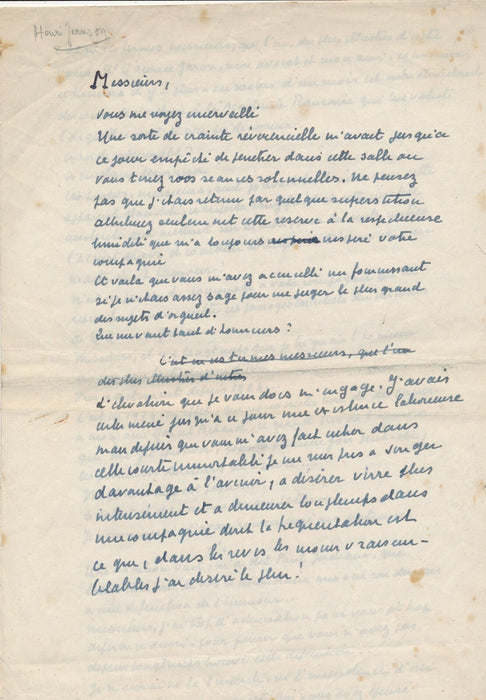 Henri Jeanson
Messieurs,
Vous me voyez émerveillé
Une sorte de crainte révérencielle m'avait jusqu'à
ce jour empêché de pénétrer dans cette salle où
vous tenez vos séances solennelles. Ne pensez
pas que j'étais retenu par quelque superstition
attribuez seulement cette réserve à la respectueuse
timidité que m'a toujours inspiré votre
compagnie
Et voilà que vous m'avez accueilli me fournissant
si je n'étais assez sage pour me juger le plus grand
des sujets d'orgueil.
tant d'honneurs ?
C'est en ces termes messieurs, que l'un
des plus illustres d'entre
que je vous dois m'engage. J'avais
mené jusqu'à ce jour une existence laborieuse
mais depuis que vous m'avez fait entrer dans
cette courte immortalité je me suis pris à songer
davantage à l'avenir, à désirer vivre plus
intensément et à demeurer longtemps dans
une compagnie dont la fréquentation est
ce que, dans les rêves les moins vraisem-
blables j'ai désiré le plus !